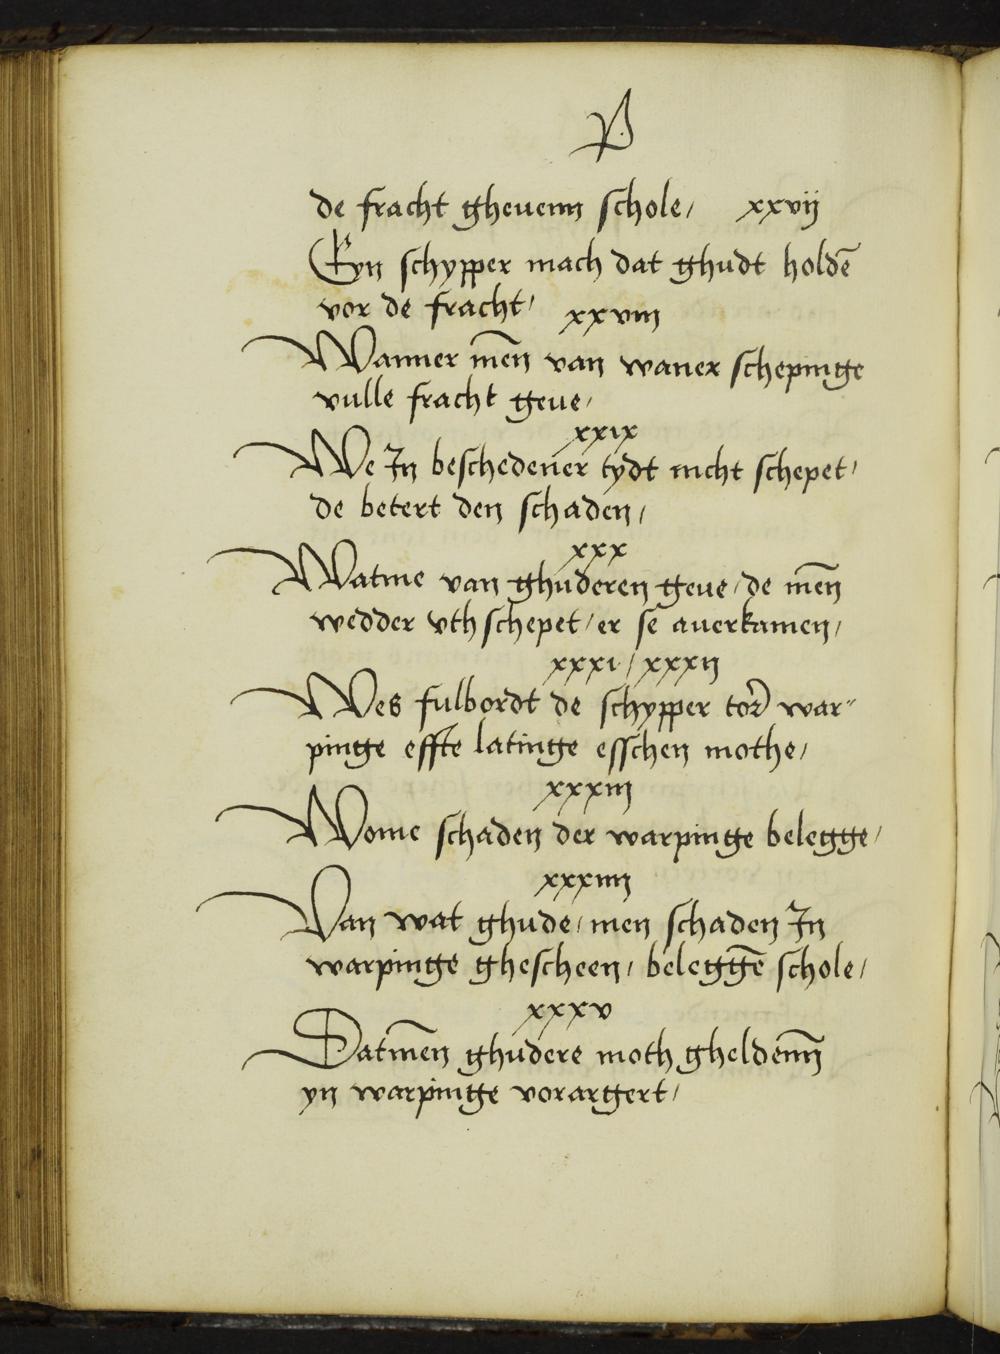 P
de fracht gheuenn schole / xxvij
Eyn schypper mach dat ghudt holdē
vor de fracht / xxviii
Wanner mēn van waner schepinge
vulle fracht geue /
xxix
We In beschedener tydt nicht schepet /
de betert den schaden /
xxx
Watme van ghuderen geue / de mēn
wedder vth schepet / er se auerkamen /
xxxi / xxxii
Wes fulbordt de schypper tor war-
pinge effte latinge esschen mothe /
xxxiii
Wome schaden der warpinge belegge /
xxxiiii
Van wat ghude / men schaden In
warpinge ghescheen / beleggē schole /
xxxv
Datmēn ghudere moth gheldenn̄
yn warpinge vorargert /